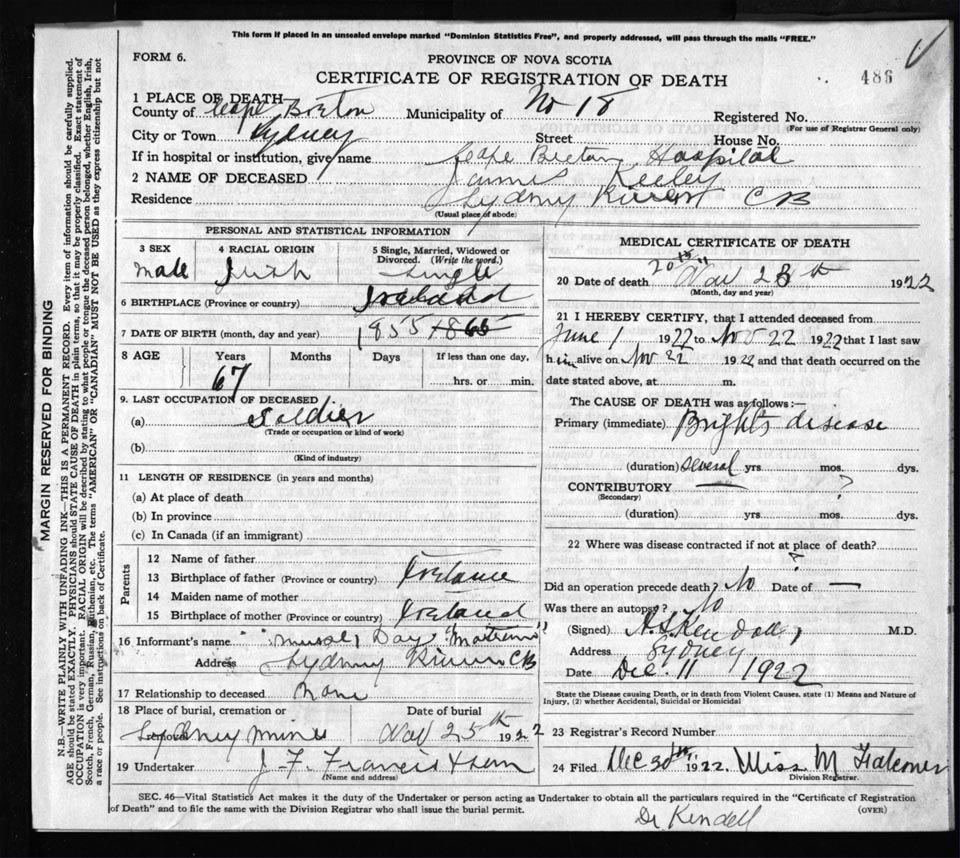 This form if placed in an unsealed envelope marked "Dominion Statistics Free", and properly addressed, will pass through the mails "FREE."
FORM 6.
PROVINCE OF NOVA SCOTIA
CERTIFICATE OF REGISTRATION OF DEATH
486
1 PLACE OF DEATH
County of Cape Breton Municipality of No 18 Registered No.
(For use of Registrar General only)
City or Town Sydney Street House No.
If in hospital or institution, give name Cape Breton Hospital
2 NAME OF DECEASED James Keeley
Residence Sydney River CB
(Usual place of abode)
PERSONAL AND STATISTICAL INFORMATION
3 SEX Male
4 RACIAL ORIGIN Irish
5 Single, Married, Widowed or Divorced. (Write the word.) Single
6 BIRTHPLACE (Province or country) Ireland
7 DATE OF BIRTH (month, day and year) 1855
8 AGE Years Months Days If less than one day,
67 hrs. or min.
9. LAST OCCUPATION OF DECEASED
(a) Soldier
(Trade or occupation or kind of work)
(b)
(Kind of industry)
11 LENGTH OF RESIDENCE (in years and months)
(a) At place of death
(b) In province
(c) In Canada (if an immigrant)
Parents
12 Name of father
13 Birthplace of father (Province or country) Ireland
14 Maiden name of mother
15 Birthplace of mother (Province or country) Ireland
16 Informant's name
Address Sydney River CB
17 Relationship to deceased None
18 Place of burial, cremation or removal Date of burial
Sydney Mines Nov 25th 1922
19 Undertaker J. F. Francis & Son
(Name and address)
MEDICAL CERTIFICATE OF DEATH
20 Date of death Nov 23th 1922
(Month, day and year)
21 I HEREBY CERTIFY, that I attended deceased from
June 1 1922 to Nov 22 1922 that I last saw
him alive on Nov 22 1922 and that death occurred on the
date stated above, at m.
The CAUSE OF DEATH was as follows:—
Primary (immediate) Brights disease
(duration) several yrs. mos. dys.
CONTRIBUTORY — ?
(Secondary)
(duration) yrs. mos. dys.
22 Where was disease contracted if not at place of death?
?
Did an operation precede death? No Date of —
Was there an autopsy? No
(Signed) A. S. Kendall, M.D.
Address Sydney
Date Dec. 11 1922
State the Disease causing Death, or in death from Violent Causes, state (1) Means and Nature of
Injury, (2) whether Accidental, Suicidal or Homicidal
23 Registrar's Record Number
24 Filed Dec 30th 1922. Miss M Falconer
Division Registrar.
SEC. 46—Vital Statistics Act makes it the duty of the Undertaker or person acting as Undertaker to obtain all the particulars required in the "Certificate of Registration
of Death" and to file the same with the Division Registrar who shall issue the burial permit.
(OVER)
Dr Kendell
MARGIN RESERVED FOR BINDING
N.B.—WRITE PLAINLY WITH UNFADING INK—THIS IS A PERMANENT RECORD. Every item of information should be carefully supplied.
AGE should be stated EXACTLY. PHYSICIANS should STATE CAUSE OF DEATH in plain terms, so that it may be properly classified. Exact statement of
OCCUPATION is very important. RACIAL ORIGIN will be described by stating to what people or tongue the deceased person belonged, whether English, Irish,
Scotch, French, German, Russian, Ruthenian, etc. The terms "AMERICAN" OR "CANADIAN" MUST NOT BE USED as they express citizenship but not
a race or people. See instructions on back of Certificate.